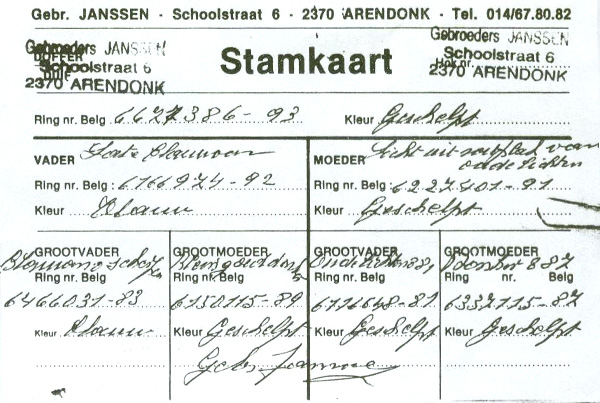 Gebr. JANSSEN - Schoolstraat 6 - 2370 ARENDONK - Tel. 014/67.80.82
Gebroeders JANSSEN
Schoolstraat 6
2370 ARENDONK
DOFFER
Stamkaart
Gebroeders JANSSEN
Schoolstraat 6
2370 ARENDONK
Hok nr.
Ring nr. Belg 6627386-93 Kleur Geschelpt
VADER
Ring nr. Belg : 6166974-92
Kleur Blauw
MOEDER Licht uit van oude lichten
Ring nr. Belg : 6227401-91
Kleur Geschelpt
GROOTVADER
Ring nr. Belg
6466031-83
Kleur Blauw
GROOTMOEDER
Ring nr. Belg
6150115-89
Kleur Geschelpt
GROOTVADER
Ring nr. Belg
6716648-81
Kleur Geschelpt
GROOTMOEDER
Ring nr. Belg
6332715-87
Kleur Geschelpt
Gebr. Janssen